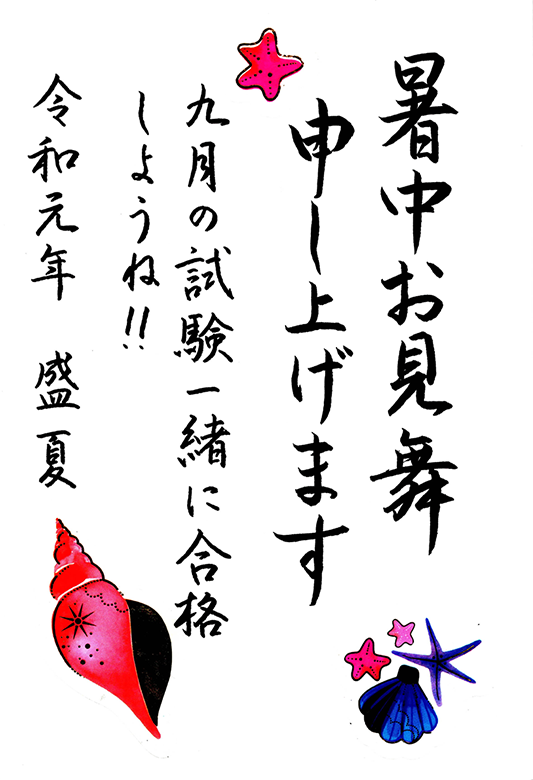 暑中お見舞
申し上げます
九月の試験一緒に合格
しようね!!
令和元年 盛夏